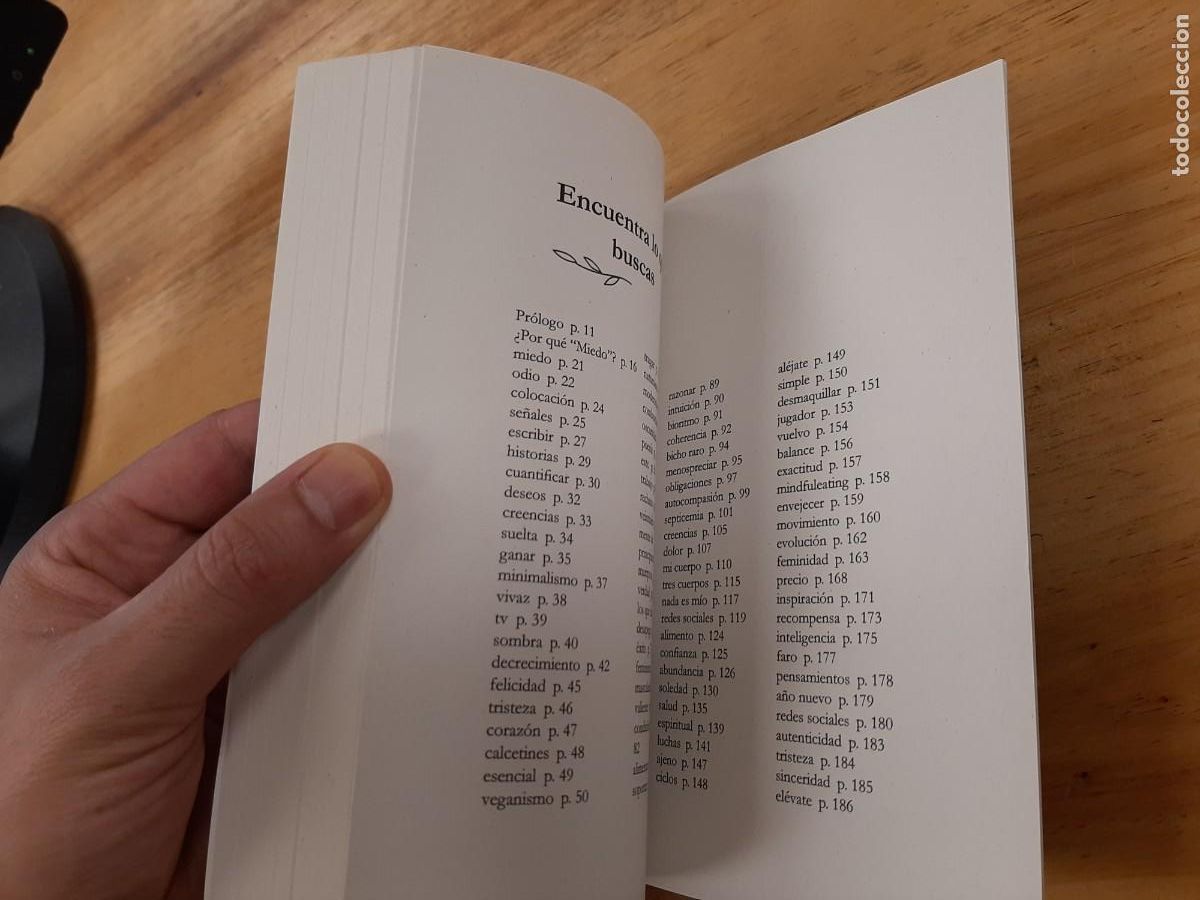 Encuentra lo
buscas
Prólogo p. 11
¿Por qué “Miedo”? p. 16
miedo p. 21
odio p. 22
colocación p. 24
señales p. 25
escribir p. 27
historias p. 29
cuantificar p. 30
deseos p. 32
creencias p. 33
suelta p. 34
ganar p. 35
minimalismo p. 37
vivaz p. 38
tv p. 39
sombra p. 40
decrecimiento p. 42
felicidad p. 45
tristeza p. 46
corazón p. 47
calcetines p. 48
esencial p. 49
veganismo p. 50
82
razonar p. 89
intuición p. 90
bioritmo p. 91
coherencia p. 92
bicho raro p. 94
menospreciar p. 95
obligaciones p. 97
autocompasión p. 99
septicemia p. 101
creencias p. 105
dolor p. 107
mi cuerpo p. 110
tres cuerpos p. 115
nada es mío p. 117
redes sociales p. 119
alimento p. 124
confianza p. 125
abundancia p. 126
soledad p. 130
salud p. 135
espiritual p. 139
luchas p. 141
ajeno p. 147
ciclos p. 148
aléjate p. 149
simple p. 150
desmaquillar p. 151
jugador p. 153
vuelvo p. 154
balance p. 156
exactitud p. 157
mindfuleating p. 158
envejecer p. 159
movimiento p. 160
evolución p. 162
feminidad p. 163
precio p. 168
inspiración p. 171
recompensa p. 173
inteligencia p. 175
faro p. 177
pensamientos p. 178
año nuevo p. 179
redes sociales p. 180
autenticidad p. 183
tristeza p. 184
sinceridad p. 185
elévate p. 186
todocoleccion